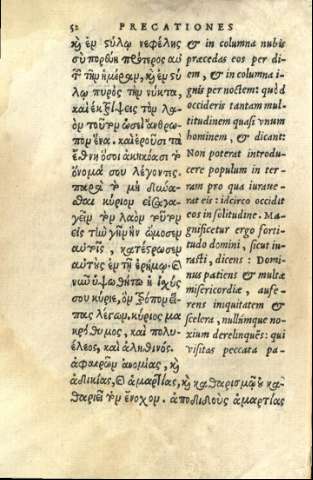 52 PRECATIONES
καὶ ἐν στύλῳ νεφέλης
σὺ πορεύῃ πρότερος αὐ
τῶν τὴν ἡμέραν, καὶ ἐν στύ
λῳ πυρὸς τὴν νύκτα,
καὶ ἐκτρίψεις τὸν λα-
ὸν τοῦτον ὡσεὶ ἄνθρω
πον ἕνα. καὶ ἐροῦσι τὰ
ἔθνη ὅσοι ἀκηκόασι τὸ
ὄνομά σου λέγοντες,
παρὰ τὸ μὴ δύνα-
σθαι κύριον εἰσαγα-
γεῖν τὸν λαὸν τοῦτον
εἰς τὴν γῆν ἣν ὤμοσεν
αὐτοῖς, κατέστρωσεν
αὐτοὺς ἐν τῇ ἐρήμῳ. καὶ
νῦν ὑψωθήτω ἡ ἰσχύς
σου κύριε, ὃν τρόπον εἶ-
πας λέγων, κύριος μα
κρόθυμος, καὶ πολυ-
έλεος, καὶ ἀληθινός.
ἀφαιρῶν ἀνομίας, καὶ
ἀδικίας, καὶ ἁμαρτίας, καὶ καθαρισμῷ οὐ κα-
θαριεῖ τὸν ἔνοχον. ἀποδιδοὺς ἁμαρτίας
& in columna nubis
præcedas eos per di
em, & in columna i-
gnis per noctem: quòd
occideris tantam mul-
titudinem quasi vnum
hominem, & dicant:
Non poterat introdu-
cere populum in ter-
ram pro qua iuraue-
rat eis: idcirco occidit
eos in solitudine. Ma-
gnificetur ergo forti-
tudo domini, sicut iu-
rasti, dicens: Domi-
nus patiens & multæ
misericordiæ, aufe-
rens iniquitatem &
scelera, nullúmque no-
xium derelinquēs: qui
visitas peccata pa-